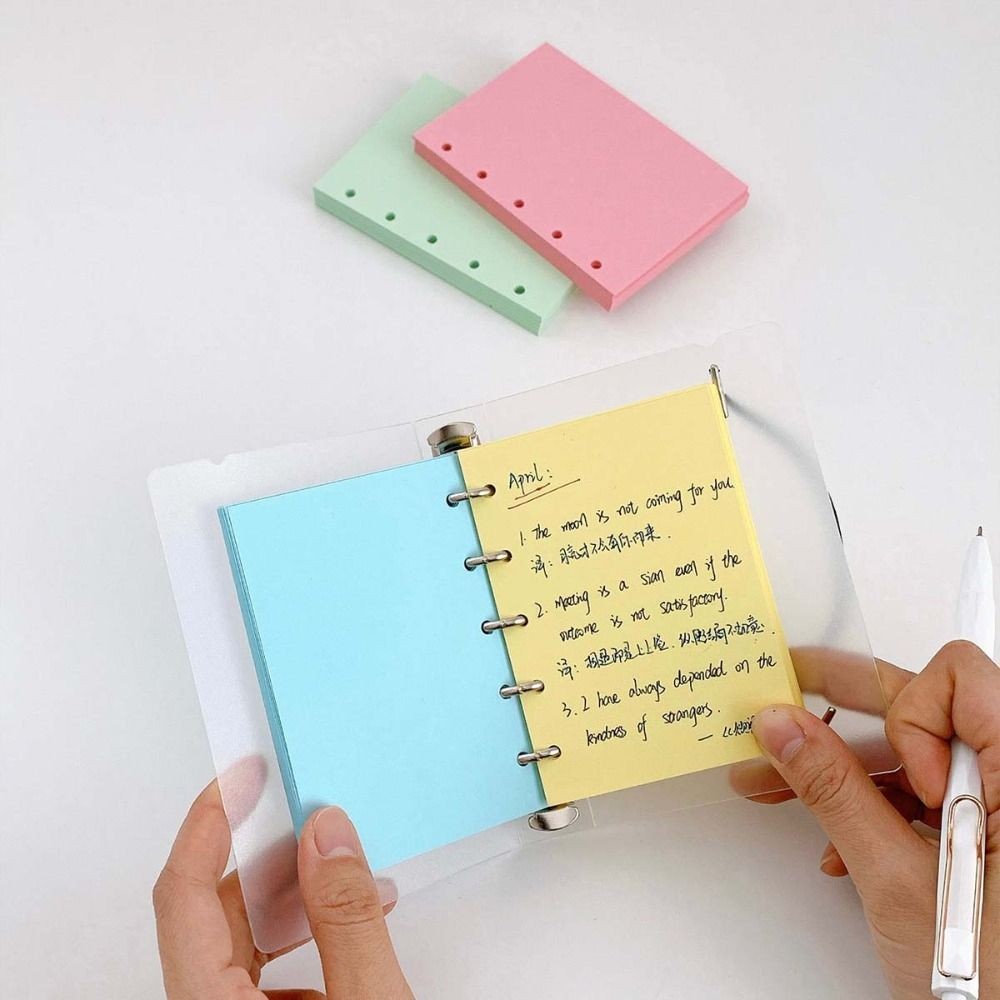 April:
1. The moon is not coming for you
译: 月亮对不会奔你而来.
2. Meeting is a sign even if the
outcome is not satisfactory.
译: 相遇即是上上签. 纵使结局不如意.
3. I have always depended on the
kindness of strangers.
— 《